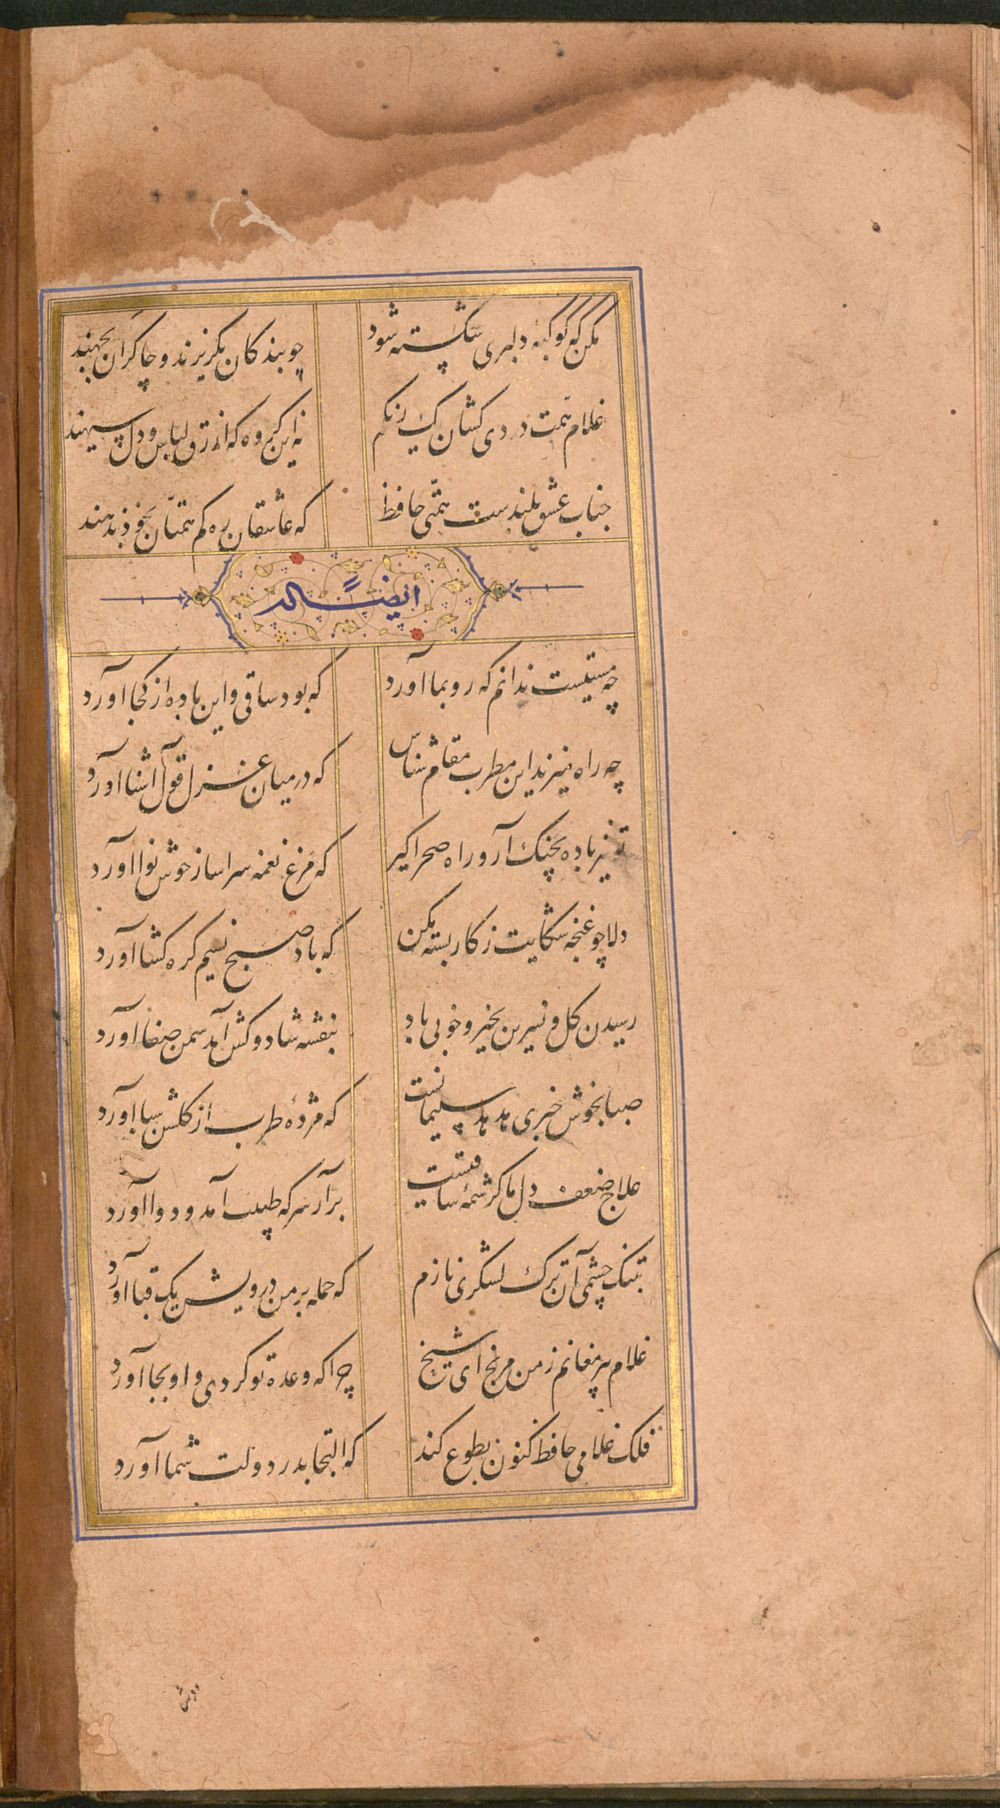 مکن که کوکبه دلبری شکسته شود چو بندکان بکریزند و چاکران بجهند
غلام همت دردی کشان یک رنکم نه این کروه که ازرق لباس و دل سیهند
جناب عشق بلندست همتی حافظ که عاشقان ره کم همتان بخود ندهند
ایضاً له
چه مستیست ندانم که رو بما آورد که بود ساقی و این باده از کجا آورد
چه راه میزند این مطرب مقام شناس که در میان غزل قول آشنا آورد
تو نیز باده بچنک آر و راه صحرا کیر که مرغ نغمه سرا ساز خوش نوا آورد
دلا چو غنچه شکایت ز کار بسته مکن که باد صبح نسیم کره کشا آورد
رسیدن کل و نسرین بخیر و خوبی باد بنفشه شاد و کش آمد سمن صفا آورد
صبا بخوش خبری هدهد سلیمانست که مژدهٔ طرب از کلشن سبا آورد
علاج ضعف دل ما کرشمهٔ ساقیست برآر سر که طبیب آمد و دوا آورد
بتنک چشمی آن ترک لشکری نازم که حمله بر من درویش یک قبا آورد
غلام پیر مغانم ز من مرنج ای شیخ چرا که وعده تو کردی و او بجا آورد
فلک غلامی حافظ کنون بطوع کند که التجا بدر دولت شما آورد